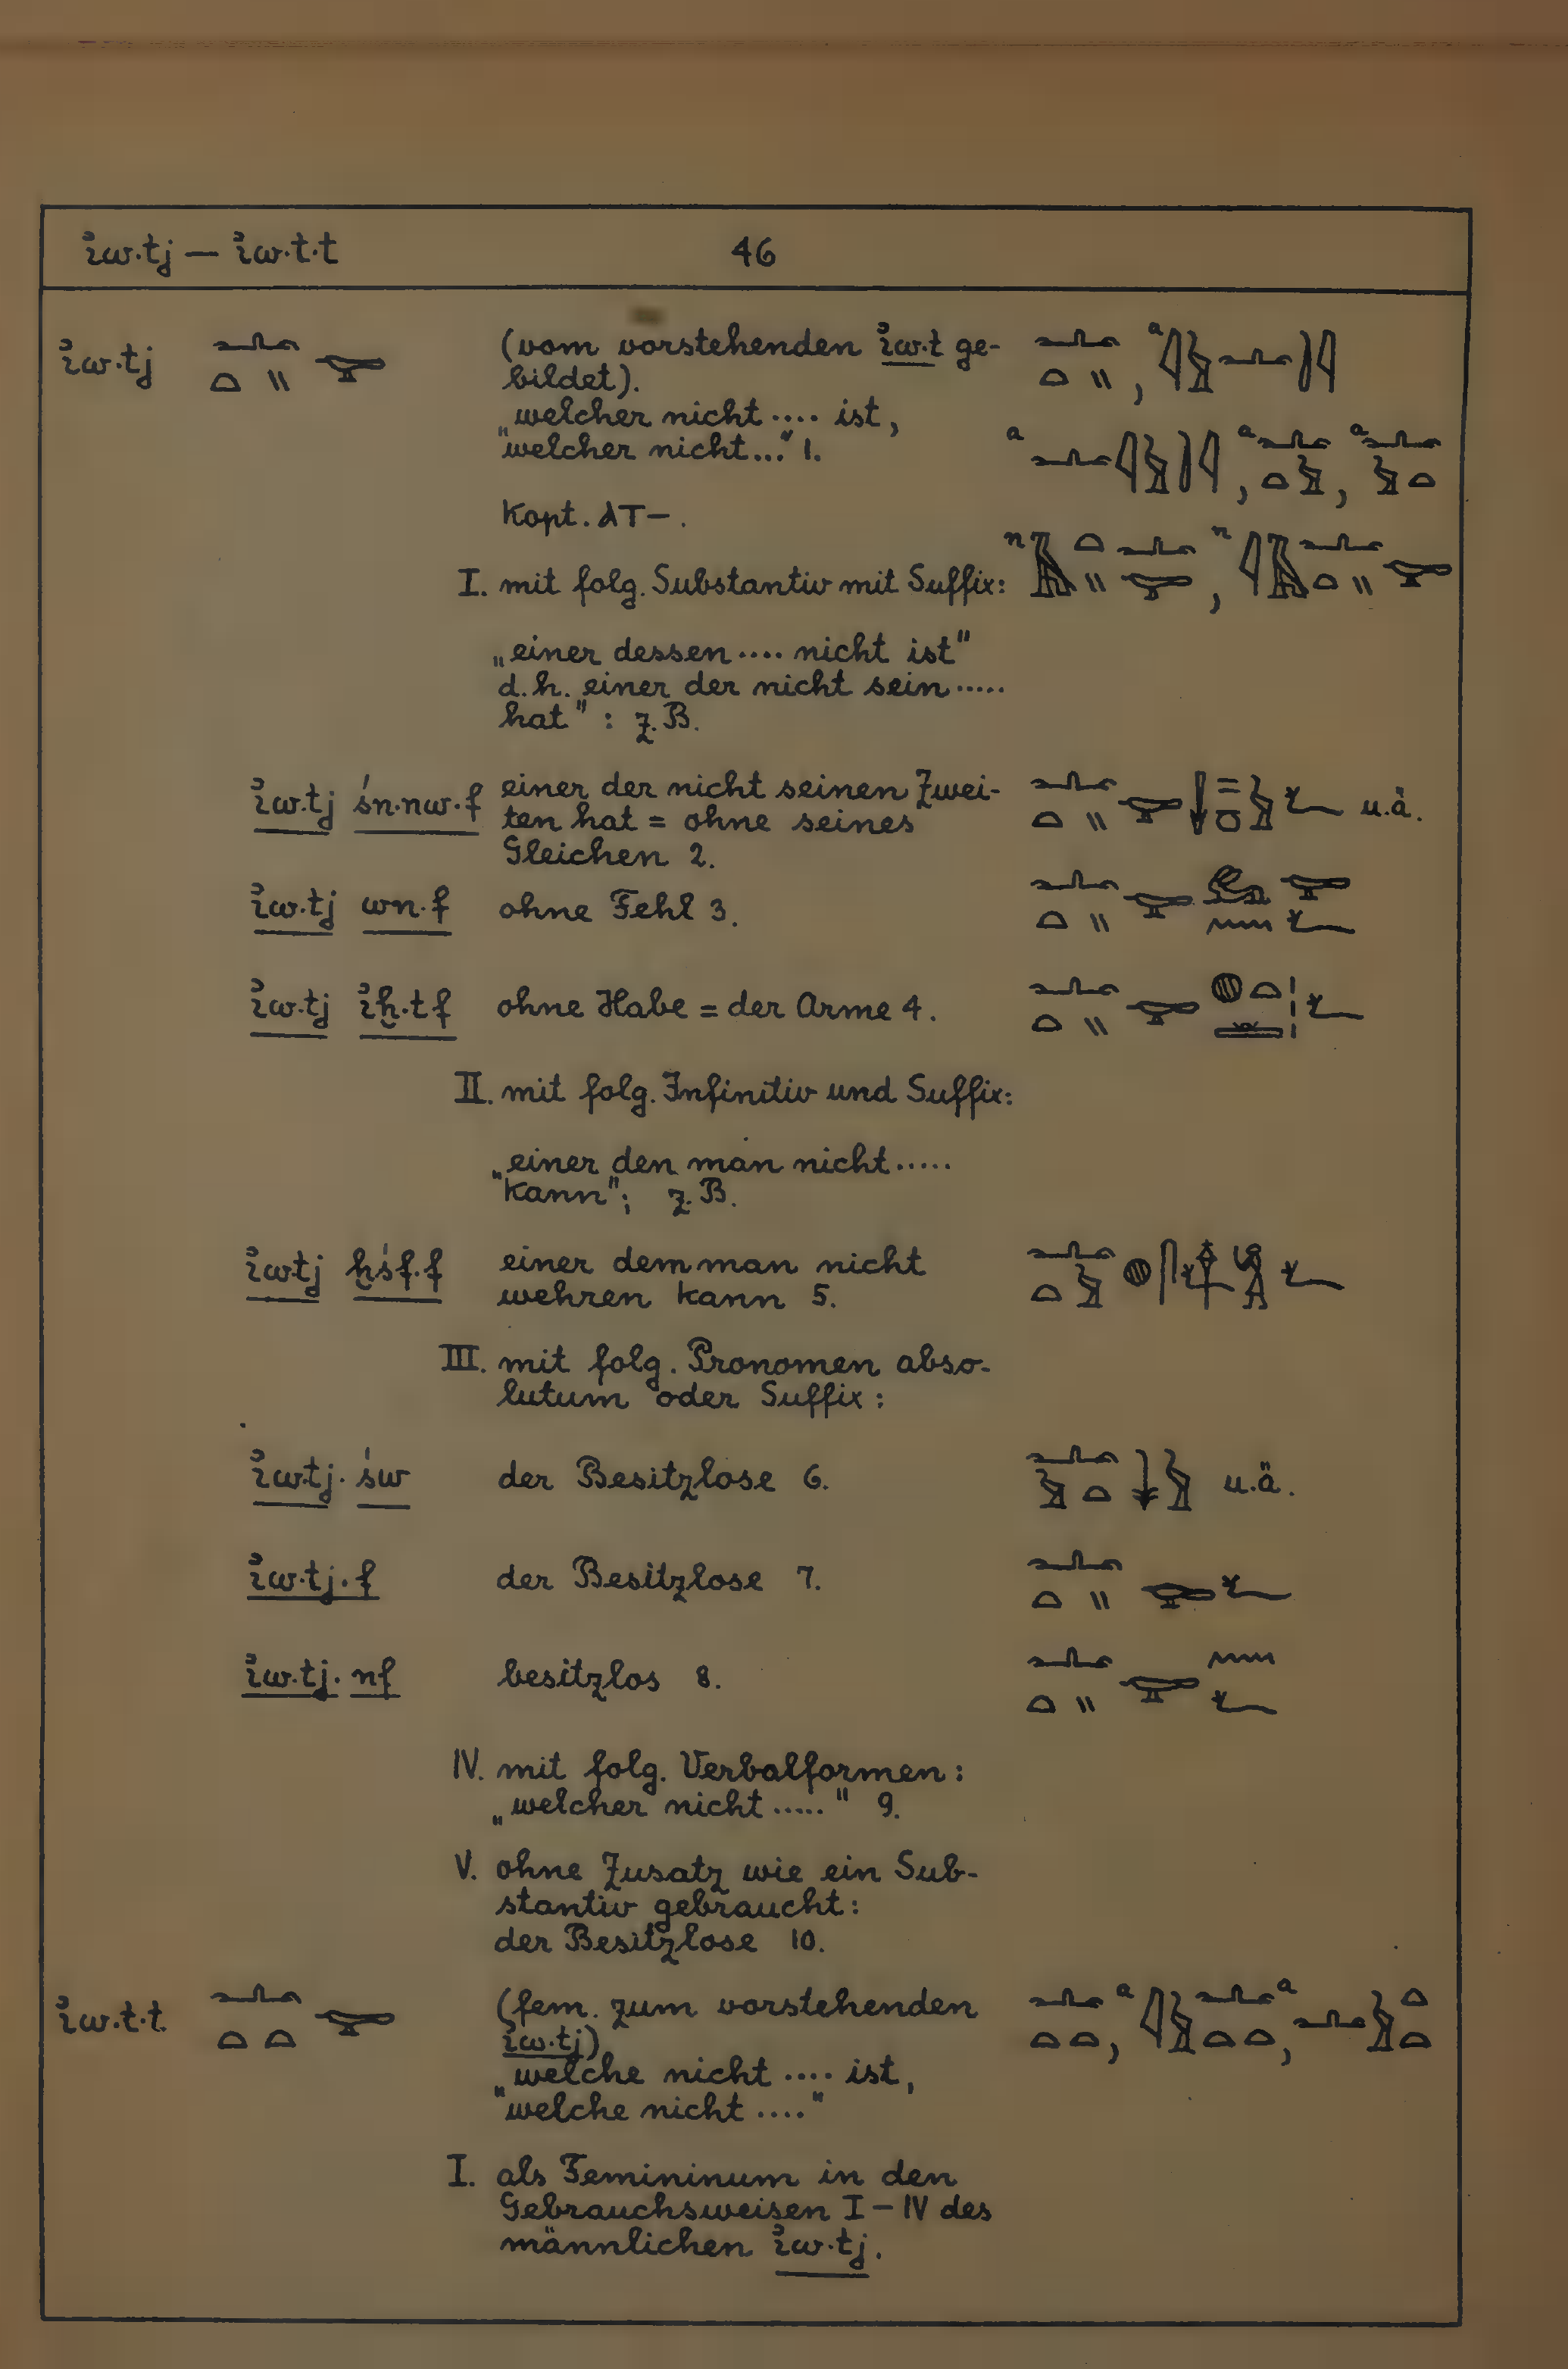 ꞽw.tj — ꞽw.t.t 46
ꞽw.tj (vom vorstehenden ꞽw.t ge-
bildet).
„welcher nicht .... ist,
welcher nicht ...“ 1.
Kopt. ⲁⲧ–.
I. mit folg. Substantiv mit Suffix:
„einer dessen .... nicht ist“
d.h. einer der nicht sein .....
hat“ : z.B.
ꞽw.tj śn.nw.f einer der nicht seinen Zwei- u.ä.
ten hat = ohne seines
Gleichen 2.
ꞽw.tj wn.f ohne Fehl 3.
ꞽw.tj ꞽḫ.t.f ohne Habe = der Arme 4.
II. mit folg. Infinitiv und Suffix:
„einer den man nicht .....
kann“; z.B.
ꞽw.tj ḫśf.f einer dem man nicht
wehren kann 5.
III. mit folg. Pronomen abso-
lutum oder Suffix:
ꞽw.tj. św der Besitzlose 6. u.ä.
ꞽw.tj.f der Besitzlose 7.
ꞽw.tj. nf besitzlos 8.
IV. mit folg. Verbalformen:
„welcher nicht .....“ 9.
V. ohne Zusatz wie ein Sub-
stantiv gebraucht:
der Besitzlose 10.
ꞽw.t.t. (fem. zum vorstehenden
ꞽw.tj)
„welche nicht .... ist,
welche nicht ....“
I. als Femininum in den
Gebrauchsweisen I – IV des
männlichen ꞽw.tj.